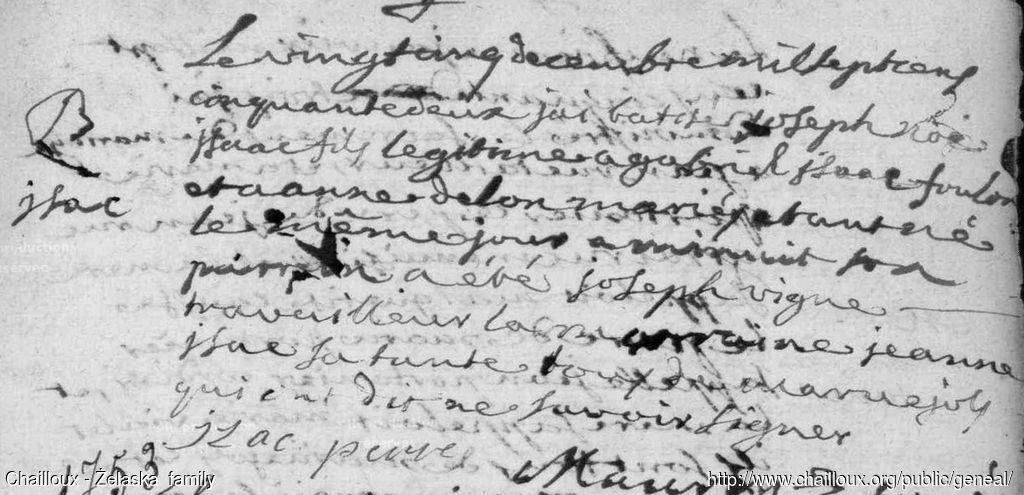 Le vingt cinq decembre mil sept cens
B
cinquante deux jai batisé joseph noé
jsaac fils legitime a gabriel jsaac foulon
jsac
et a anne delon mariés etant né
le même jour a minuit son
parrain a été joseph vigne
travailleur la marraine jeanne
jsac sa tante tous de maruejols
qui ont dit ne savoir signer
jzac
1753
Chailloux - Želaska family
http://www.chailloux.org/public/geneal/